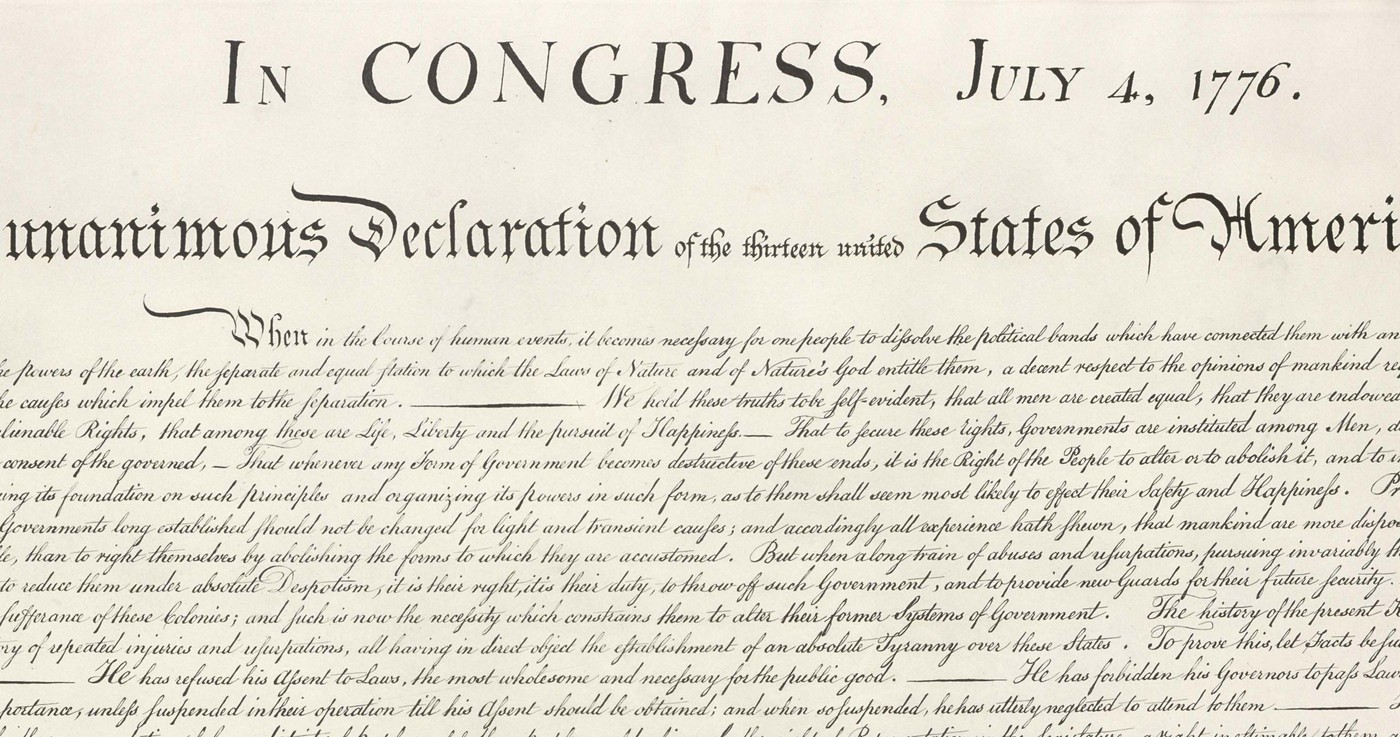 IN CONGRESS, JULY 4, 1776.
unanimous Declaration of the thirteen united States of Ameri
When in the Course of human events, it becomes neceſsary for one people to diſsolve the political bands which have connected them with an
he powers of the earth, the ſeparate and equal ſtation to which the Laws of Nature and of Nature's God entitle them, a decent respect to the opinions of mankind re
he cauſes which impel them to the ſeparation. — We hold these truths to be ſelf-evident, that all men are created equal, that they are endowed
alienable Rights, that among these are Life, Liberty and the pursuit of Happineſs.— That to ſecure these rights, Governments are instituted among Men, d
consent of the governed, — That whenever any Form of Government becomes destructive of these ends, it is the Right of the People to alter or to abolish it, and to in
ing its foundation on such principles and organizing its powers in such form, as to them shall seem most likely to effect their Safety and Happineſs. P
Governments long established ſhould not be changed for light and transient cauſes; and accordingly all experience hath ſhewn, that mankind are more dispo
le, than to right themselves by abolishing the forms to which they are accustomed. But when a long train of abuses and uſurpations, pursuing invariably th
to reduce them under absolute Despotism, it is their right, it is their duty, to throw off such Government, and to provide new Guards for their future ſecurity.
ſufferance of these Colonies; and ſuch is now the neceſsity which constrains them to alter their former Systems of Government. The history of the present K
ry of repeated injuries and uſurpations, all having in direct object the eſtablishment of an absolute Tyranny over these States. To prove this, let Facts be ſu
— He has refused his Aſsent to Laws, the most wholesome and neceſsary for the public good. — He has forbidden his Governors to paſs Law
portance, unleſs ſuspended in their operation till his Aſsent should be obtained; and when so ſuspended, he has utterly neglected to attend to them. —